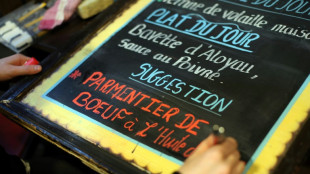 de volaille maison
PLAT DU JOUR
Bavette d'Aloyau,
sauce au Poivre.
SUGGESTION
* PARMENTIER DE
BOEUF à l'Huile